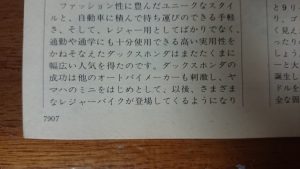 ファッション性に豊んだユニークなスタイ
ルと、自動車に積んで持ち運びのできる手軽
さ、そして、レジャー用としてばかりでなく、
通勤や通学にも十分使用できる高い実用性を
かねそなえたダックスホンダはまたたくまに
幅広い人気を得たのです。ダックスホンダの
成功は他のオートバイメーカーも刺激し、ヤ
マハのミニをはじめとして、以後、さまざま
なレジャーバイクが登場してくるようになり
7907
と9
ゴ
く見え
った
り、
大
誕生し
ドルを
全な